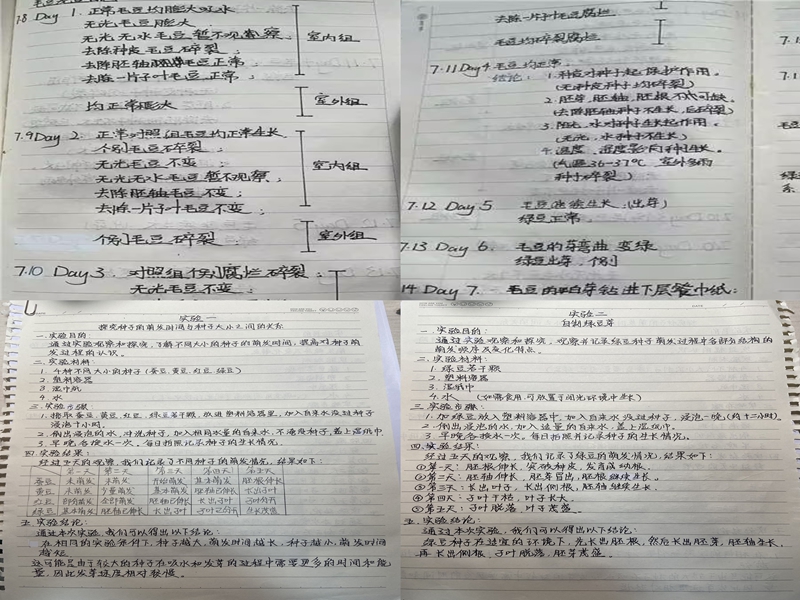 7.8 Day 1. 正常毛豆均膨大吸水
无光毛豆膨大;
无光无水毛豆暂不观察;
去除种皮毛豆碎裂;
去除胚轴毛豆正常;
去除一片子叶毛豆正常;
室内组
均正常膨大
室外组
7.9 Day 2. 正常对照组毛豆均正常生长
个别毛豆碎裂;
无光毛豆不变;
无光无水毛豆暂不观察;
去除胚轴毛豆不变;
去除一片子叶毛豆不变;
室内组
个别毛豆碎裂
室外组
7.10 Day 3. 对照组个别腐烂碎裂;
无光毛豆不变;
去除一片子叶毛豆腐烂
毛豆均碎裂腐烂
7.11 Day 4 毛豆均正常.
结论: 1. 种皮对种子起保护作用.
(无种皮种子均碎裂)
2. 胚芽, 胚轴, 胚根不可缺.
(去除胚轴种子不生长, 且碎裂)
3. 阳光, 水对种子生长起作用.
(无光, 水种子不生长)
4. 温度、湿度影响种子生长.
(气温36-37℃, 室外多雨
种子碎裂)
7.12 Day 5 毛豆继续生长(出芽)
绿豆正常.
7.13 Day 6. 毛豆的芽弯曲 变绿
绿豆出芽, 个别
14 Day 7. 毛豆的芽钻进下层餐巾纸:
实验一
探究种子的萌发时间与种子大小之间的关系
一. 实验目的:
通过实验观察和探究, 了解不同大小的种子的萌发时间, 提高对种子萌
发过程的认识.
二. 实验材料:
1. 4种不同大小的种子(蚕豆, 黄豆, 红豆, 绿豆)
2. 塑料容器
3. 湿巾纸
4. 水
三. 实验步骤
1. 拣取蚕豆, 黄豆, 红豆, 绿豆若干颗, 放进塑料容器里, 加入自来水没过种子
浸泡十小时.
2. 倒出浸泡的水, 冲洗种子, 加入相同水量的自来水, 不淹没种子, 盖上湿纸巾.
3. 早晚各换水一次. 每日拍照记录种子的生长情况.
四. 实验结果:
经过五天的观察, 我们记录了不同种子的萌发情况, 结果如下:
第一天 第二天 第三天 第四天 第五天
蚕豆 未萌发 未萌发 开始萌发 基本萌发 胚根伸长
黄豆 未萌发 少量萌发 基本萌发 胚轴伸长 长出子叶
红豆 部分萌发 全部萌发 胚轴伸长 长出子叶 子叶分开
绿豆 基本萌发 胚轴伸长 长出子叶 子叶分开 生长茂盛
五. 实验结论:
通过本次实验, 我们可以得出以下结论:
在相同的实验条件下, 种子越大, 萌发时间越长, 种子越小, 萌发时间
越短
这可能是由于较大的种子在吸水和发芽的过程中需要更多的时间和能
量, 因此发芽速度相对较慢.
实验二
自制绿豆芽
一. 实验目的:
通过实验观察和探究, 观察并记录绿豆种子萌发过程中各部分结构的
萌发顺序及变化特点.
二. 实验材料:
1. 绿豆若干颗
2. 塑料容器
3. 湿纸巾
4. 水 (如需食用, 可放置于闭光环境中生长)
三. 实验步骤:
1. 加绿豆放入塑料容器中, 加入自来水没过种子, 浸泡一晚, (约十二小时).
2. 倒出浸泡的水, 加入适量的自来水, 盖上湿纸巾.
3. 早晚各换水一次. 每日拍照记录种子的生长情况.
四. 实验结果:
经过五天的观察, 我们记录了绿豆的萌发情况, 结果如下:
①第一天: 胚根伸长, 突破种皮, 发育成幼根.
②第二天: 胚轴伸长, 胚芽冒出, 胚根继续生长.
③第三天: 长出叶子, 长出侧根, 胚轴继续生长.
④第四天: 子叶干枯, 叶子长大.
⑤第五天: 子叶脱落, 叶子茂盛.
五. 实验结论:
通过本次实验, 我们可以得出以下结论:
绿豆种子在适宜的环境下, 先长出胚根, 然后长出胚芽, 胚轴生长,
再长出侧根, 子叶脱落, 胚芽茂盛.